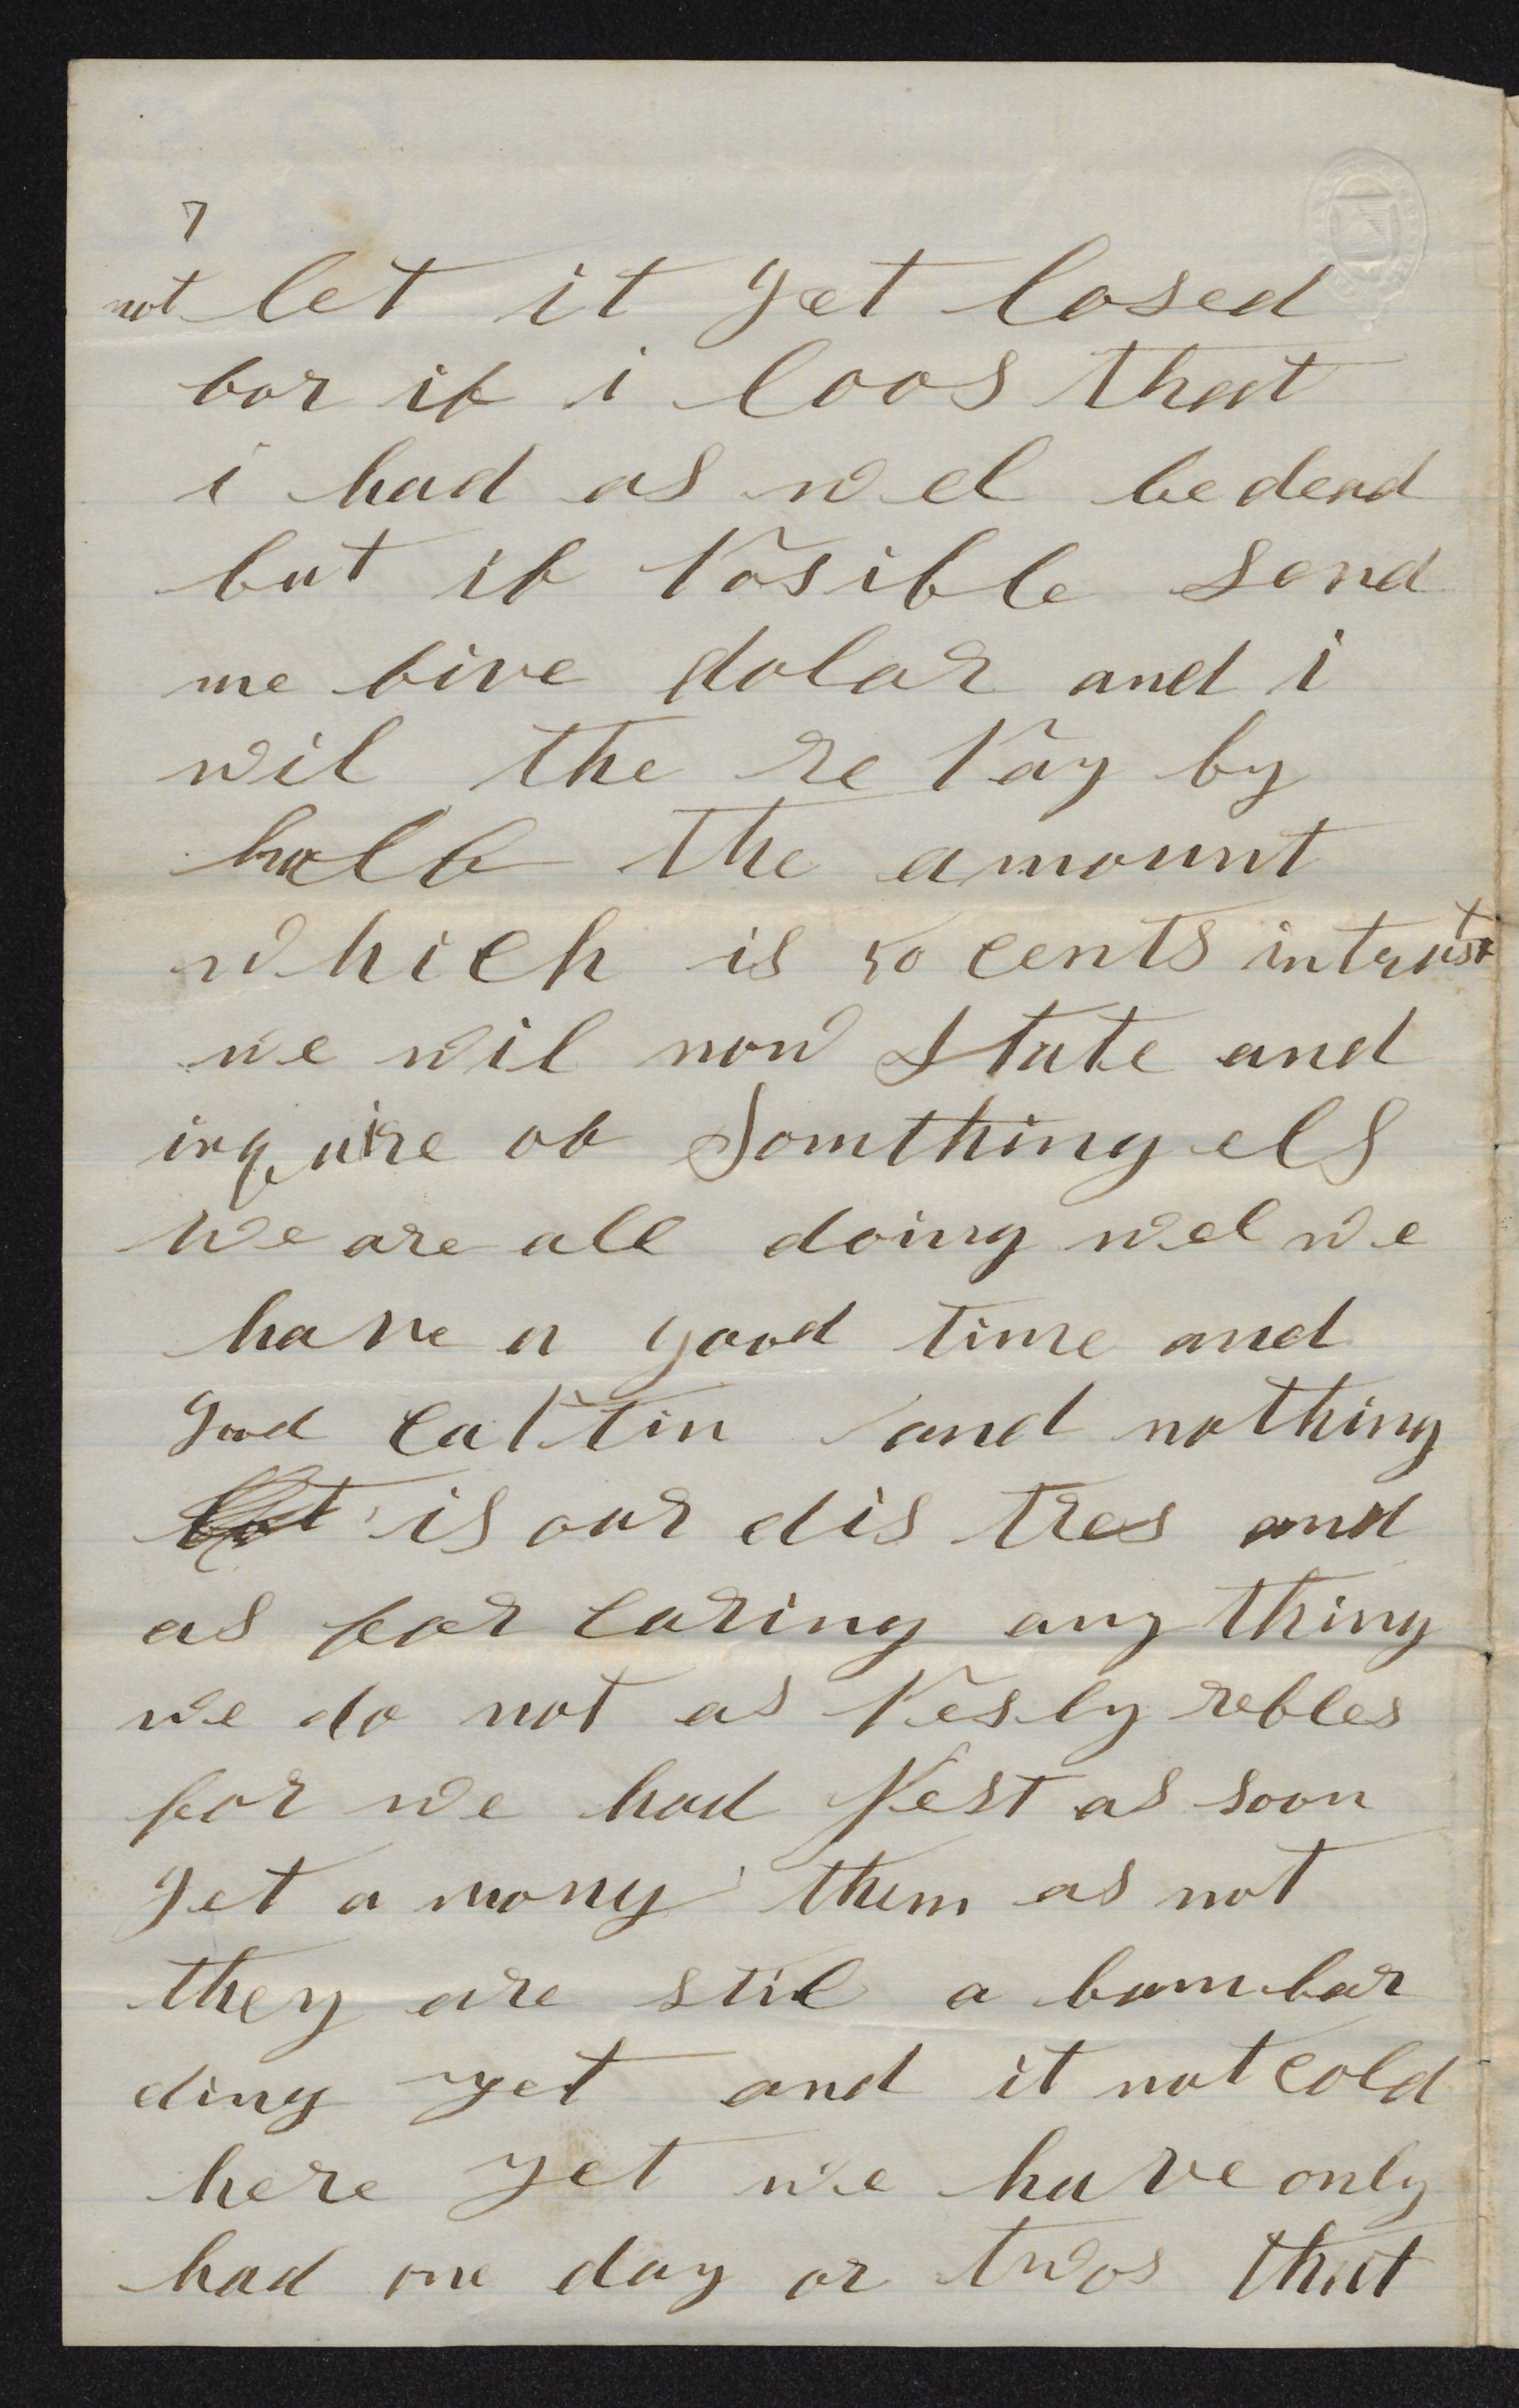 7
not let it get losed
for if i loos that
i had as wel be dead
but if Posible send
me five dolar and i
wil the re Pay by
half the amount
which is 50 cents intrust
we wil now State and
inquire of Somthing els
We are all doing wel we
have a good time and
good eattin and nothing
but is our dis tres and
as for caring any thing
we do not as Pesky rebles
for we had Jest as soon
get a mong them as not
they are stil a bumbar
ding yet and it not cold
here yet we have only
had one day or twos that